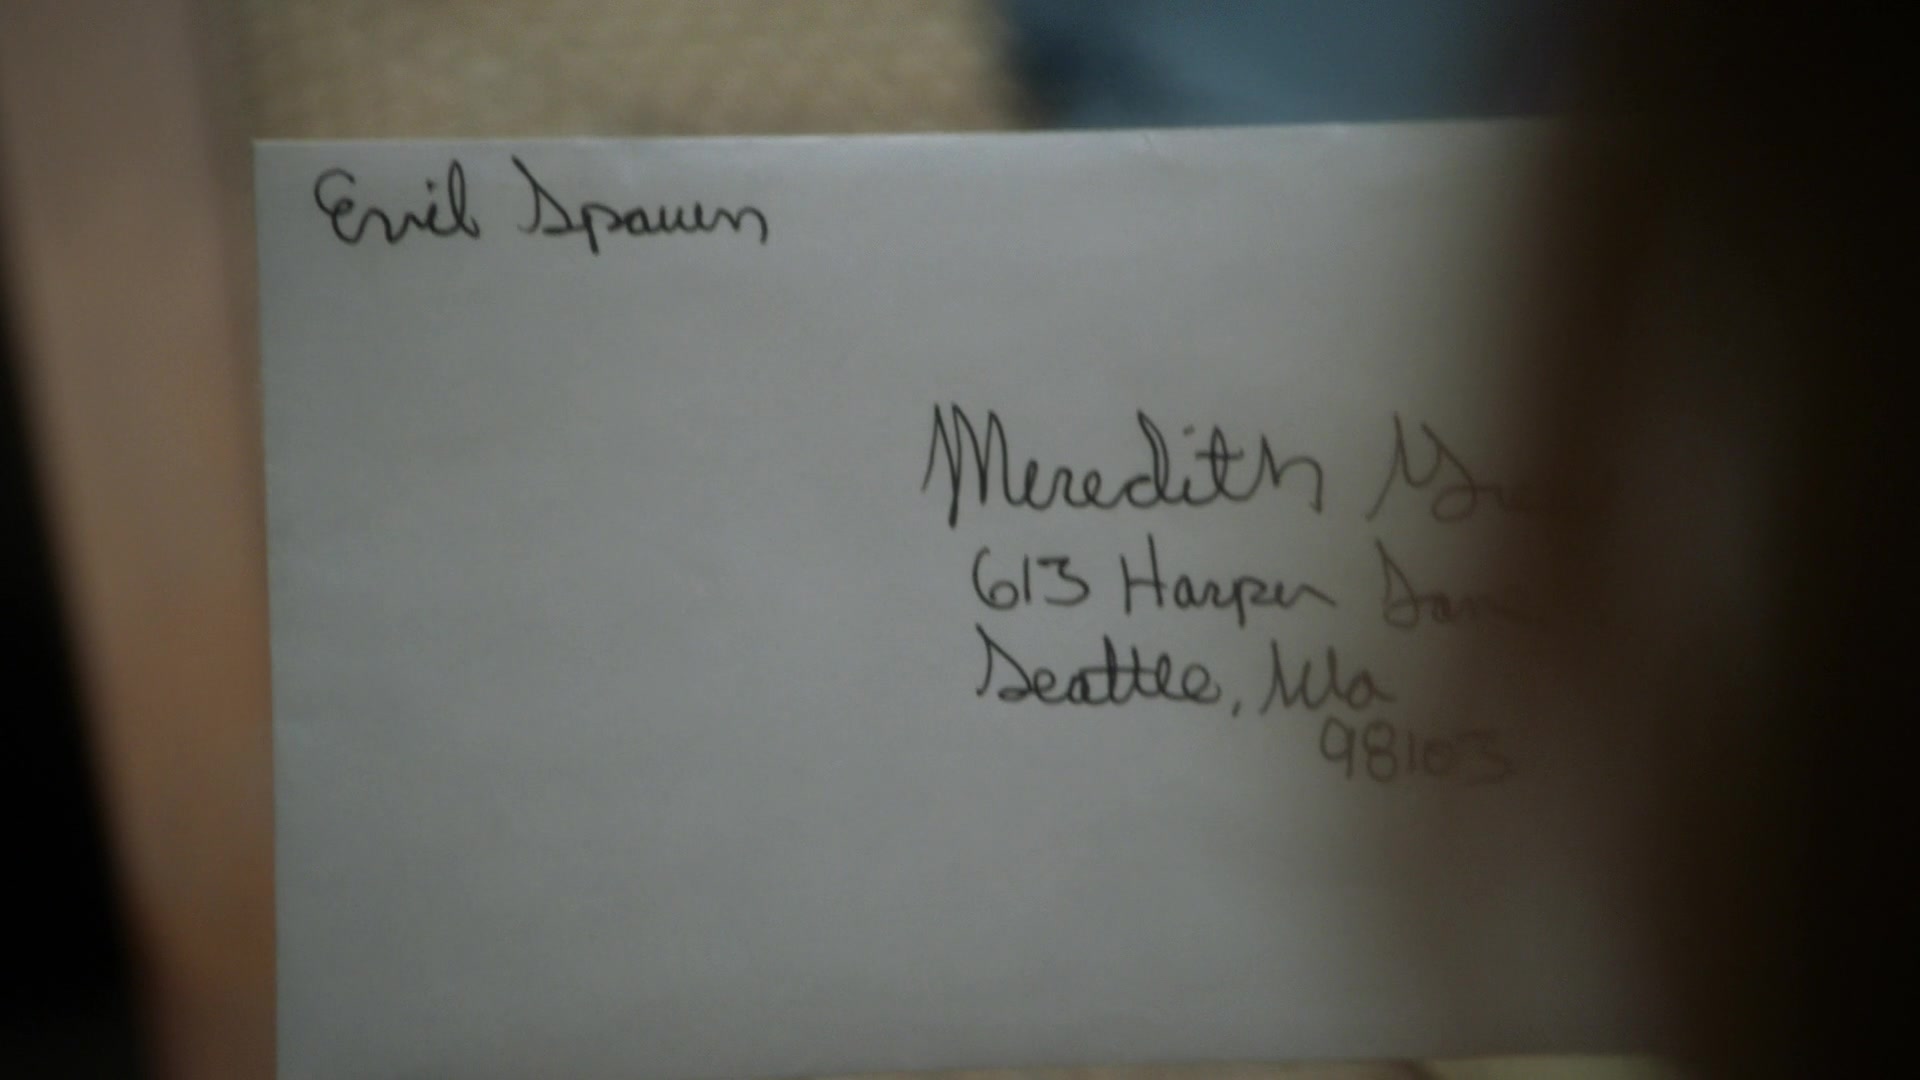 Evil Spawn
Meredith
613 Harper
Seattle, Wa
98103